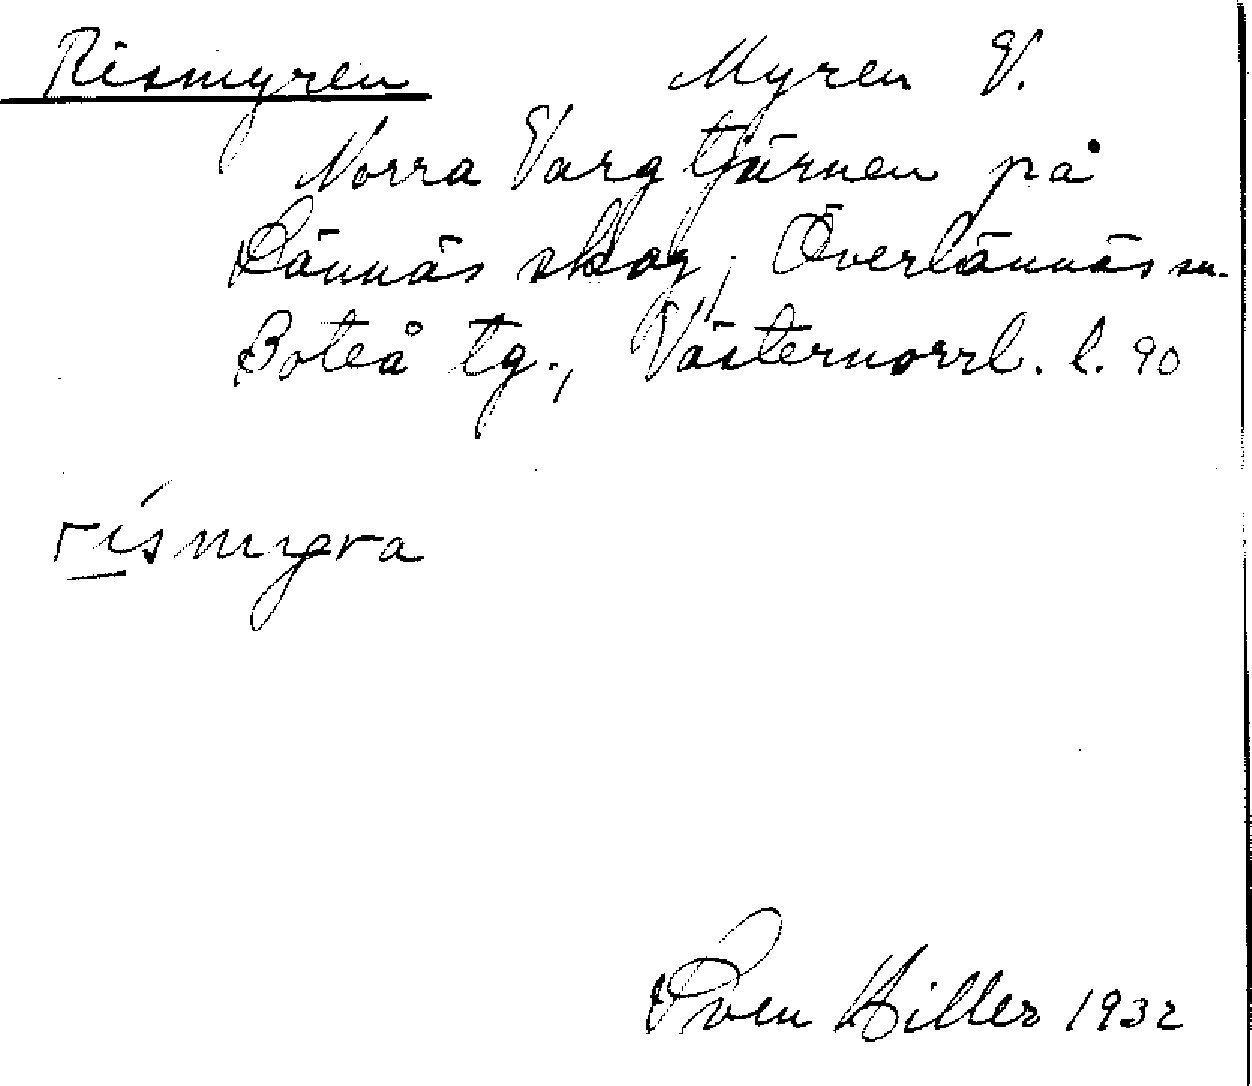 Rismyren Myren V.
Norra Vargtjärnen på
Lännäs skog, Överlännäs sn.
Boteå tg., Västernorrl. l. 90
rísmyra
Sven Hiller 1932